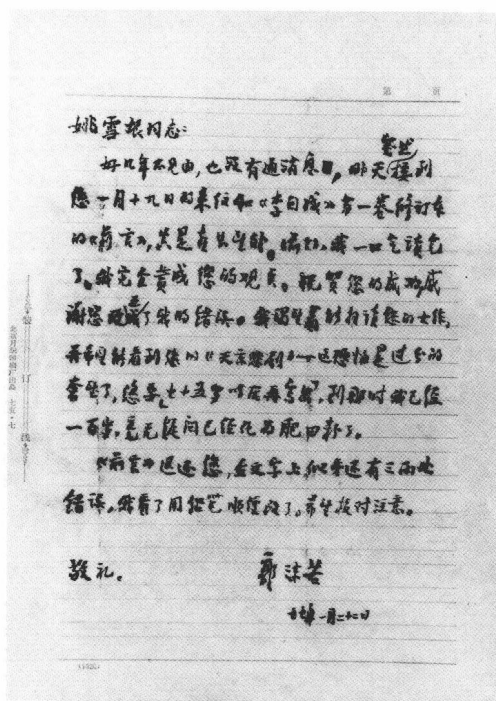 第 页
姚雪垠同志:
好几年不见面,也没有通消息,昨天忽然接到
您一月十九日的来信和《李自成》第一卷修订本
的《前言》,真是喜出望外。我一口气读完
了。我完全赞成您的观点。祝贺您的成功,感
谢您改正了我的错误。我渴望着能拜读您的大作,
再希望能看到您的《天京悲剧》——这恐怕是过分的
奢望了,您要“七十五岁以后再写”,到那时我已经
一百岁,毫无疑问已经化为肥田粉了。
《前言》退还您,在文字上,似乎还有三两处
错误,我看了用铅笔顺便改了。希望校对注意。
敬礼。
郭沫若
一月二十二日
装
订
线